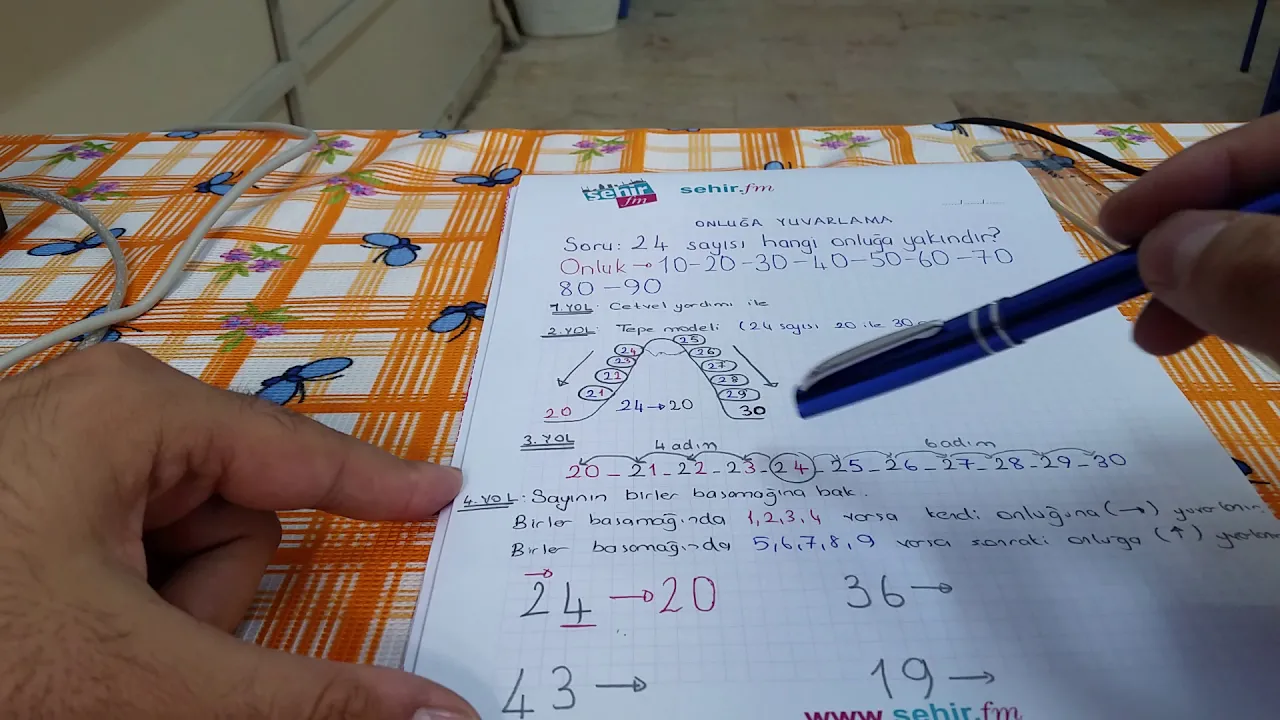 sehir fm sehir.fm
ONLUĞA YUVARLAMA
Soru: 24 sayısı hangi onluğa yakındır?
Onluk → 10-20-30-40-50-60-70
80-90
1.YOL: Cetvel yardımı ile
2.YOL: Tepe modeli (24 sayısı 20 ile 30
25
24 26
23 27
22 28
21 29
20 24→20 30
3.YOL 4 adım 6 adım
20-21-22-23-24-25-26-27-28-29-30
4.YOL: Sayının birler basamağına bak.
Birler basamağında 1,2,3,4 varsa kendi onluğuna (→)
Birler basamağında 5,6,7,8,9 varsa sonraki onluğa (↑)
24 → 20 36 →
43 → 19 →
www.sehir.fm